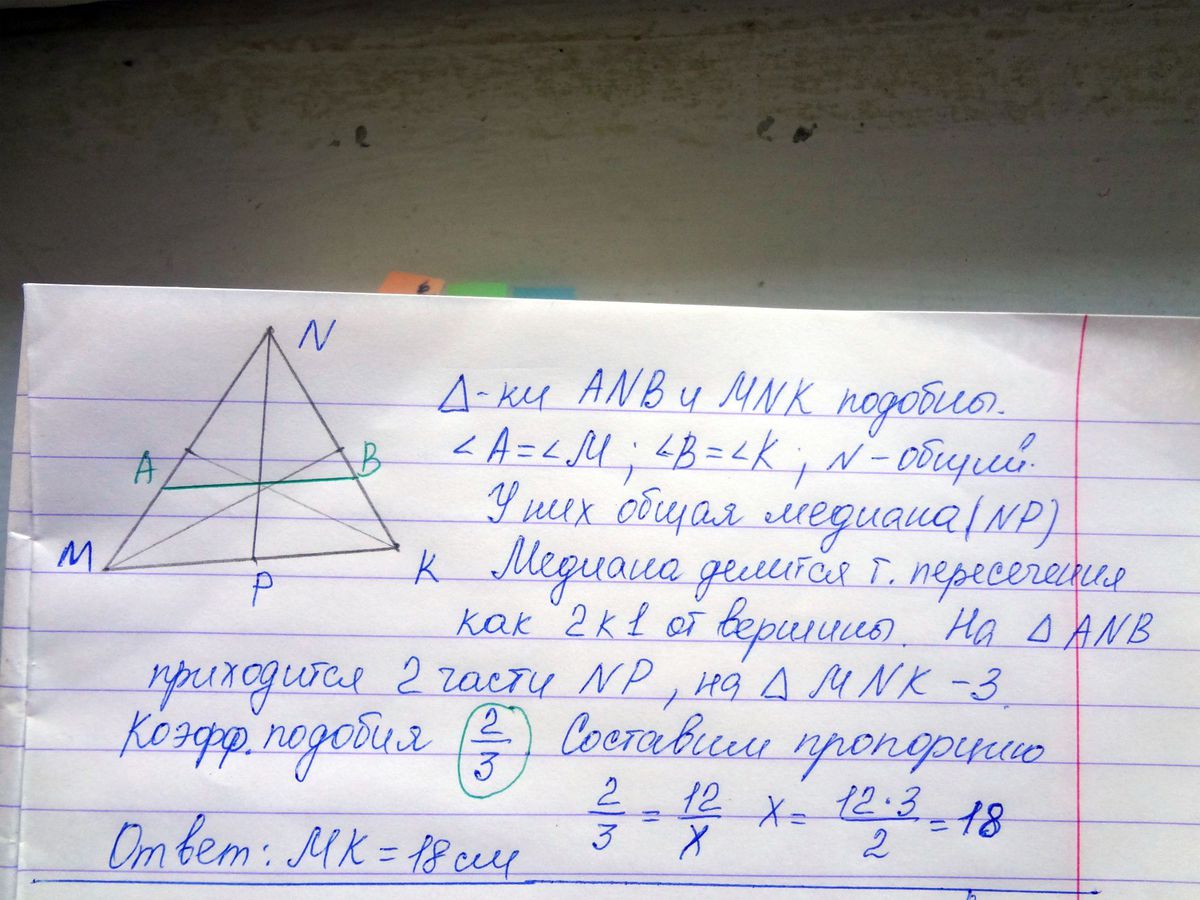 N
A
B
M
P
K
Δ-ки ANB и MNK подобны.
∠A=∠M; ∠B=∠K; N-общий.
У них общая медиана (NP)
Медиана делится т. пересечения
как 2 к 1 от вершины. На Δ ANB
приходится 2 части NP, на Δ MNK - 3.
Коэфф. подобия 2/3. Составим пропорцию
2/3 = 12/x x = 12·3/2 = 18
Ответ: MK = 18 см